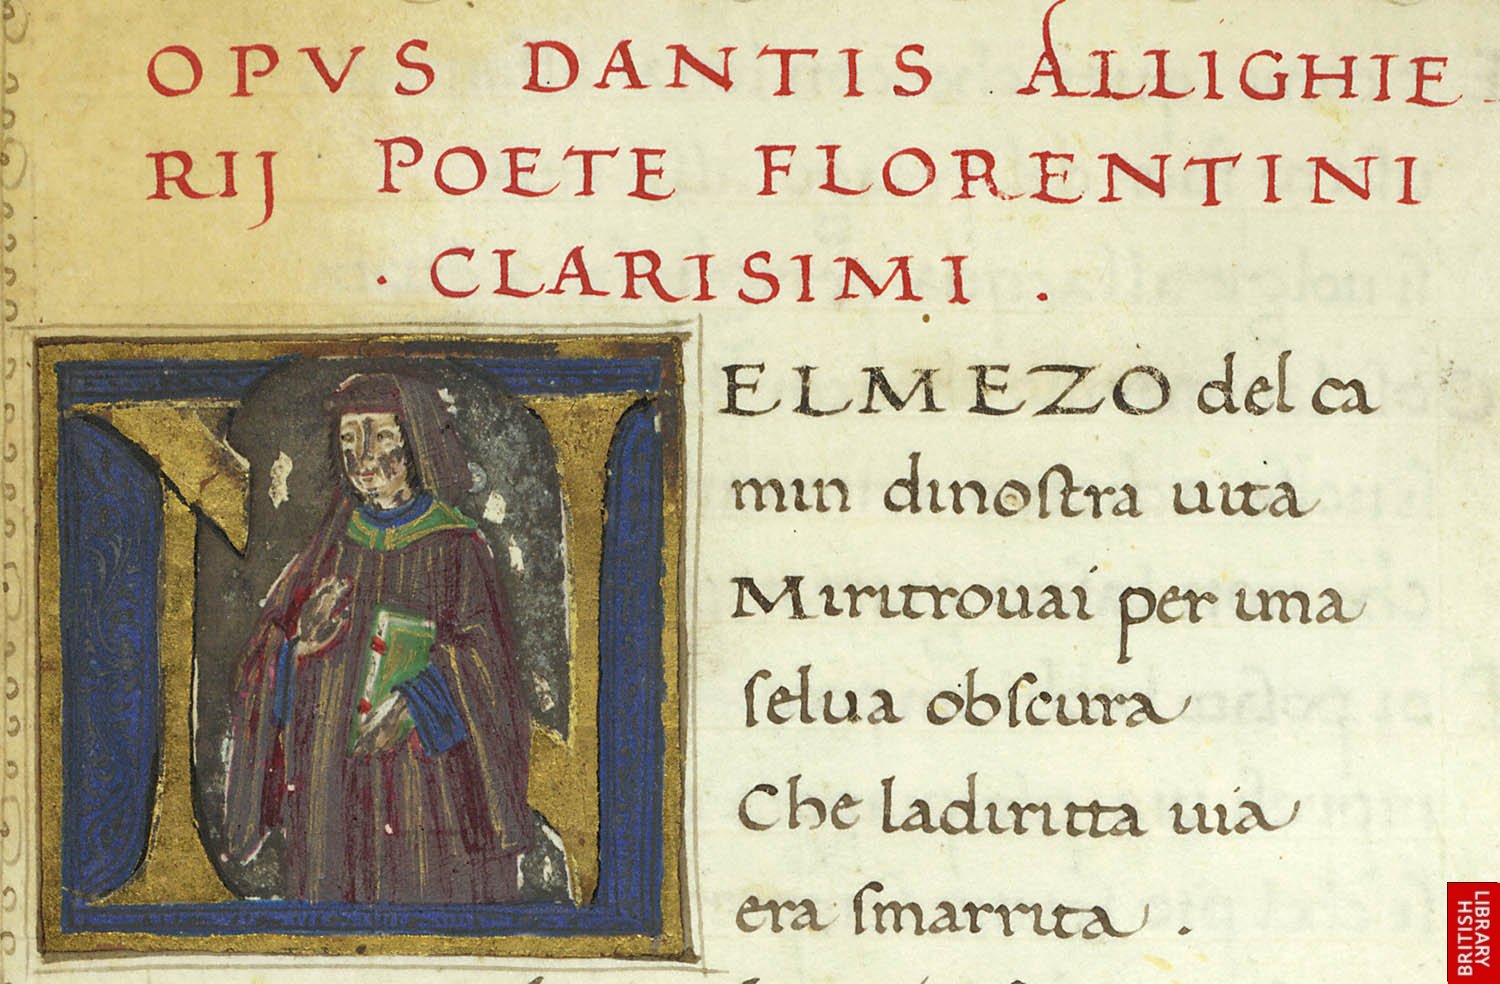 OPVS DANTIS ALLIGHIE
RIJ POETE FLORENTINI
. CLARISIMI .
NELMEZO del ca
min dinostra uita
Miritrouai per una
selua obscura
Che ladiritta uia
era smarrita .
BRITISH
LIBRARY